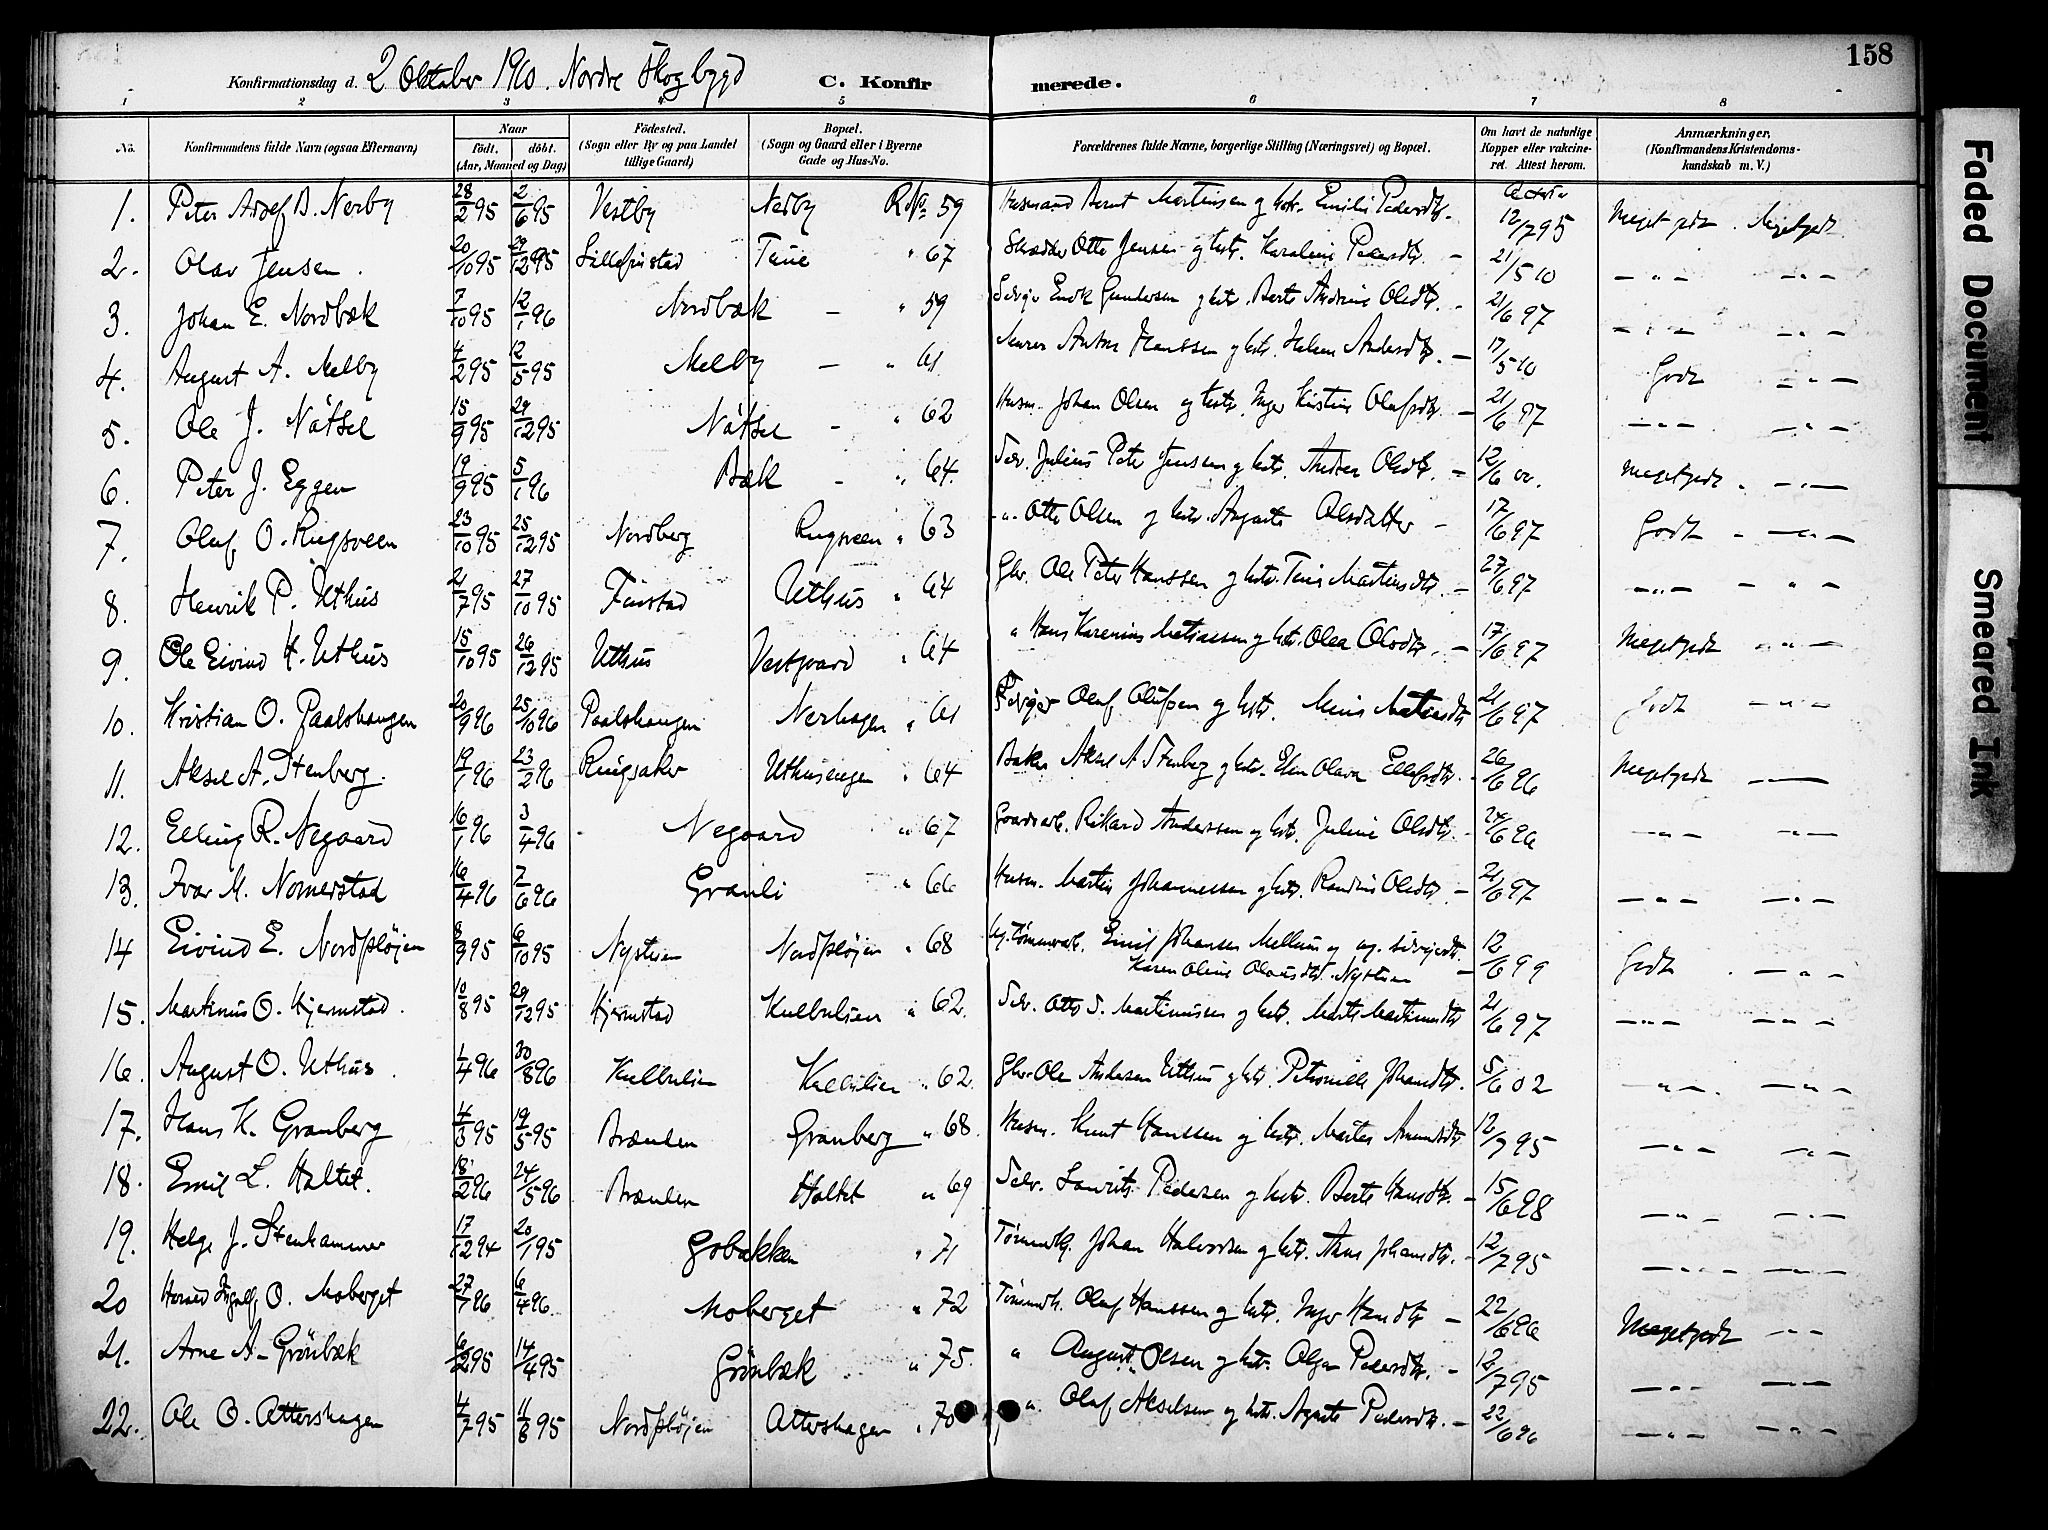 158
Konfirmationsdag d. 2 Oktober 1910. Nordre Skogbygd C. Konfirmerede.
1 2 3 4 5 6 7 8
No. Konfirmandens fulde Navn (ogsaa Efternavn) Naar født. døbt. (Aar, Maaned og Dag) Födested. (Sogn eller By og paa Landet tillige Gaard) Bopæl. (Sogn og Gaard eller i Byerne Gade og Hus-No. Forældrenes fulde Navne, borgerlige Stilling (Næringsvei) og Bopæl. Om havt de naturlige Kopper eller vaccineret. Attest herom. Anmærkninger, (Konfirmandens Kristendomskundskab m. V.)
1. Peter B. Nerby 28/2 95 2/6 95 Vestby Nerby 59 Husmand Bernt Martinsen og hstr. Emilie Pedersdtr. 12/7 95 Meget godt. Meget godt
2. Olav Jensen. 20/10 95 29/12 95 Lillefinstad Tune " 67 Skrædder Otto Jensen og hstr. Karoline Pedersdtr. - 21/5 10 - " - - " -
3. Johan E. Nordbæk 7/10 95 12/1 96 Nordbæk - " 59 Gundersen og hstr. Berte Olsdtr. - 21/6 97 - " - - " -
4. August A. Melby 4/2 95 12/5 95 Melby - " 61 Murer Anton Hanssen og hstr. Helene Andersdtr. - 17/5 10 Godt - " -
5. Ole J. Nátsel 15/9 95 29/12 95 Nátsel - " 62 Husm. Johan Olsen og hstr. Inger Kristine Olafsdtr. - 21/6 97 - " - - " -
6. Peter J. Eggen 19/9 95 5/1 96 Bæk - " 64. Selv. Julius Peter Jensen og hstr. Andrea Olsdtr. - 12/6 00. Meget godt. - " -
7. Oluf O. Rugsveen 23/10 95 25/12 95 Nordberg Rugsveen " 63 - " - Otto Olsen og hstr. Auguste Olsdatter - 17/6 97 Godt " - " -
8. Henrik P. Uthus 21/7 95 27/10 95 Finstad Uthus " 64 Gbr. Ole Peter Hanssen og hstr. Tine Martinsdtr. - 27/6 97 - " - - " -
9. Ole Eivind H. Uthus 15/10 95 26/12 95 Uthus Vestgaard " 64 " Hans Karenius Matiassen og hstr. Olea Olsdtr. - 17/6 97 Meget godt - " -
10. Kristian O. Paalshaugen 20/9 96 25/10 96 Paalshaugen Nerhagen " 61 Olaf Olufsen og hstr. 21/6 97 Godt - " -
11. Aksel A. Stenberg. 19/1 96 23/2 96 Ringsaker Uthusengen " 64 Baker Aksel A Stenberg og hstr. Elen Olava Ellefsdtr. - 26/6 96 Meget godt -
12. Elling R. Negaard 16/1 96 3/4 96 Negaard " 67 Gaardarb. Rikard Andersen og hstr. Juline Olsdtr. - 24/6 96 - " - - " -
13. Ivar M. Nomerstad 16/4 96 7/6 96 Granli " 66 Husm. Martin Johannessen og hstr. Randine Olsdtr. - 21/6 97 - " - - " -
14 Eivind E. Nordpløjen 8/9 95 6/10 95 Nystuen Nordpløjen " 68 Emil Johansen Mellum og
Karen Oline Olausdtr. Nystuen - 12/6 99 Godt. - " -
15. Martinus O. Hjermstad. 10/8 95 29/12 95 Hjermstad Kulbulien " 62. Selv. Otto S. Martinussen og hstr. Marte Martinusdtr 21/6 97 - " - - " -
16. August O. Uthus. 1/4 96 30/8 96 Kulbulien Kulbulien " 62. Gbr. Ole Andersen Uthus og hstr. Petronille Johansdtr. 5/6 02 - " - - " -
17. Hans K. Granberg 4/3 95 19/5 95 Brænden Granberg " 68. Husm. Knut Hanssen og hstr. Martea Amundsdtr 12/7 95 - " - - " -
18. Emil L. Haltet. 18/2 96 24/5 96 Brænden Haltet " 69 Selv. Laurits Pedersen og hstr. Berte Hansdtr. - 15/6 98 - " - - " -
19. Helge J. Stenhammer 17/12 94 20/1 95 Gobakken " 71 Johan Halvorsen og hstr. Anne Johansdtr. - 12/7 95 - " - - " -
20 O. Moberget 27/1 96 6/4 96. Moberget " 72 Oluf Hanssen og hstr. Inger Hansdtr - 22/6 96 Meget godt - " -
21. Arne A. Grönbæk 6/2 95 14/4 95 Grönbæk " 75. " August Olsen og hstr. Olga Pedersdtr. - 12/7 95 - " - - " -
22. Ole O. Attershagen 4/7 95 11/8 95 Nordpløjen Attershagen " 70 " Olaf Akselsen og hstr. Agnete Pedersdtr. - 22/6 96 - " - - " -
Faded Document
Smeared Ink